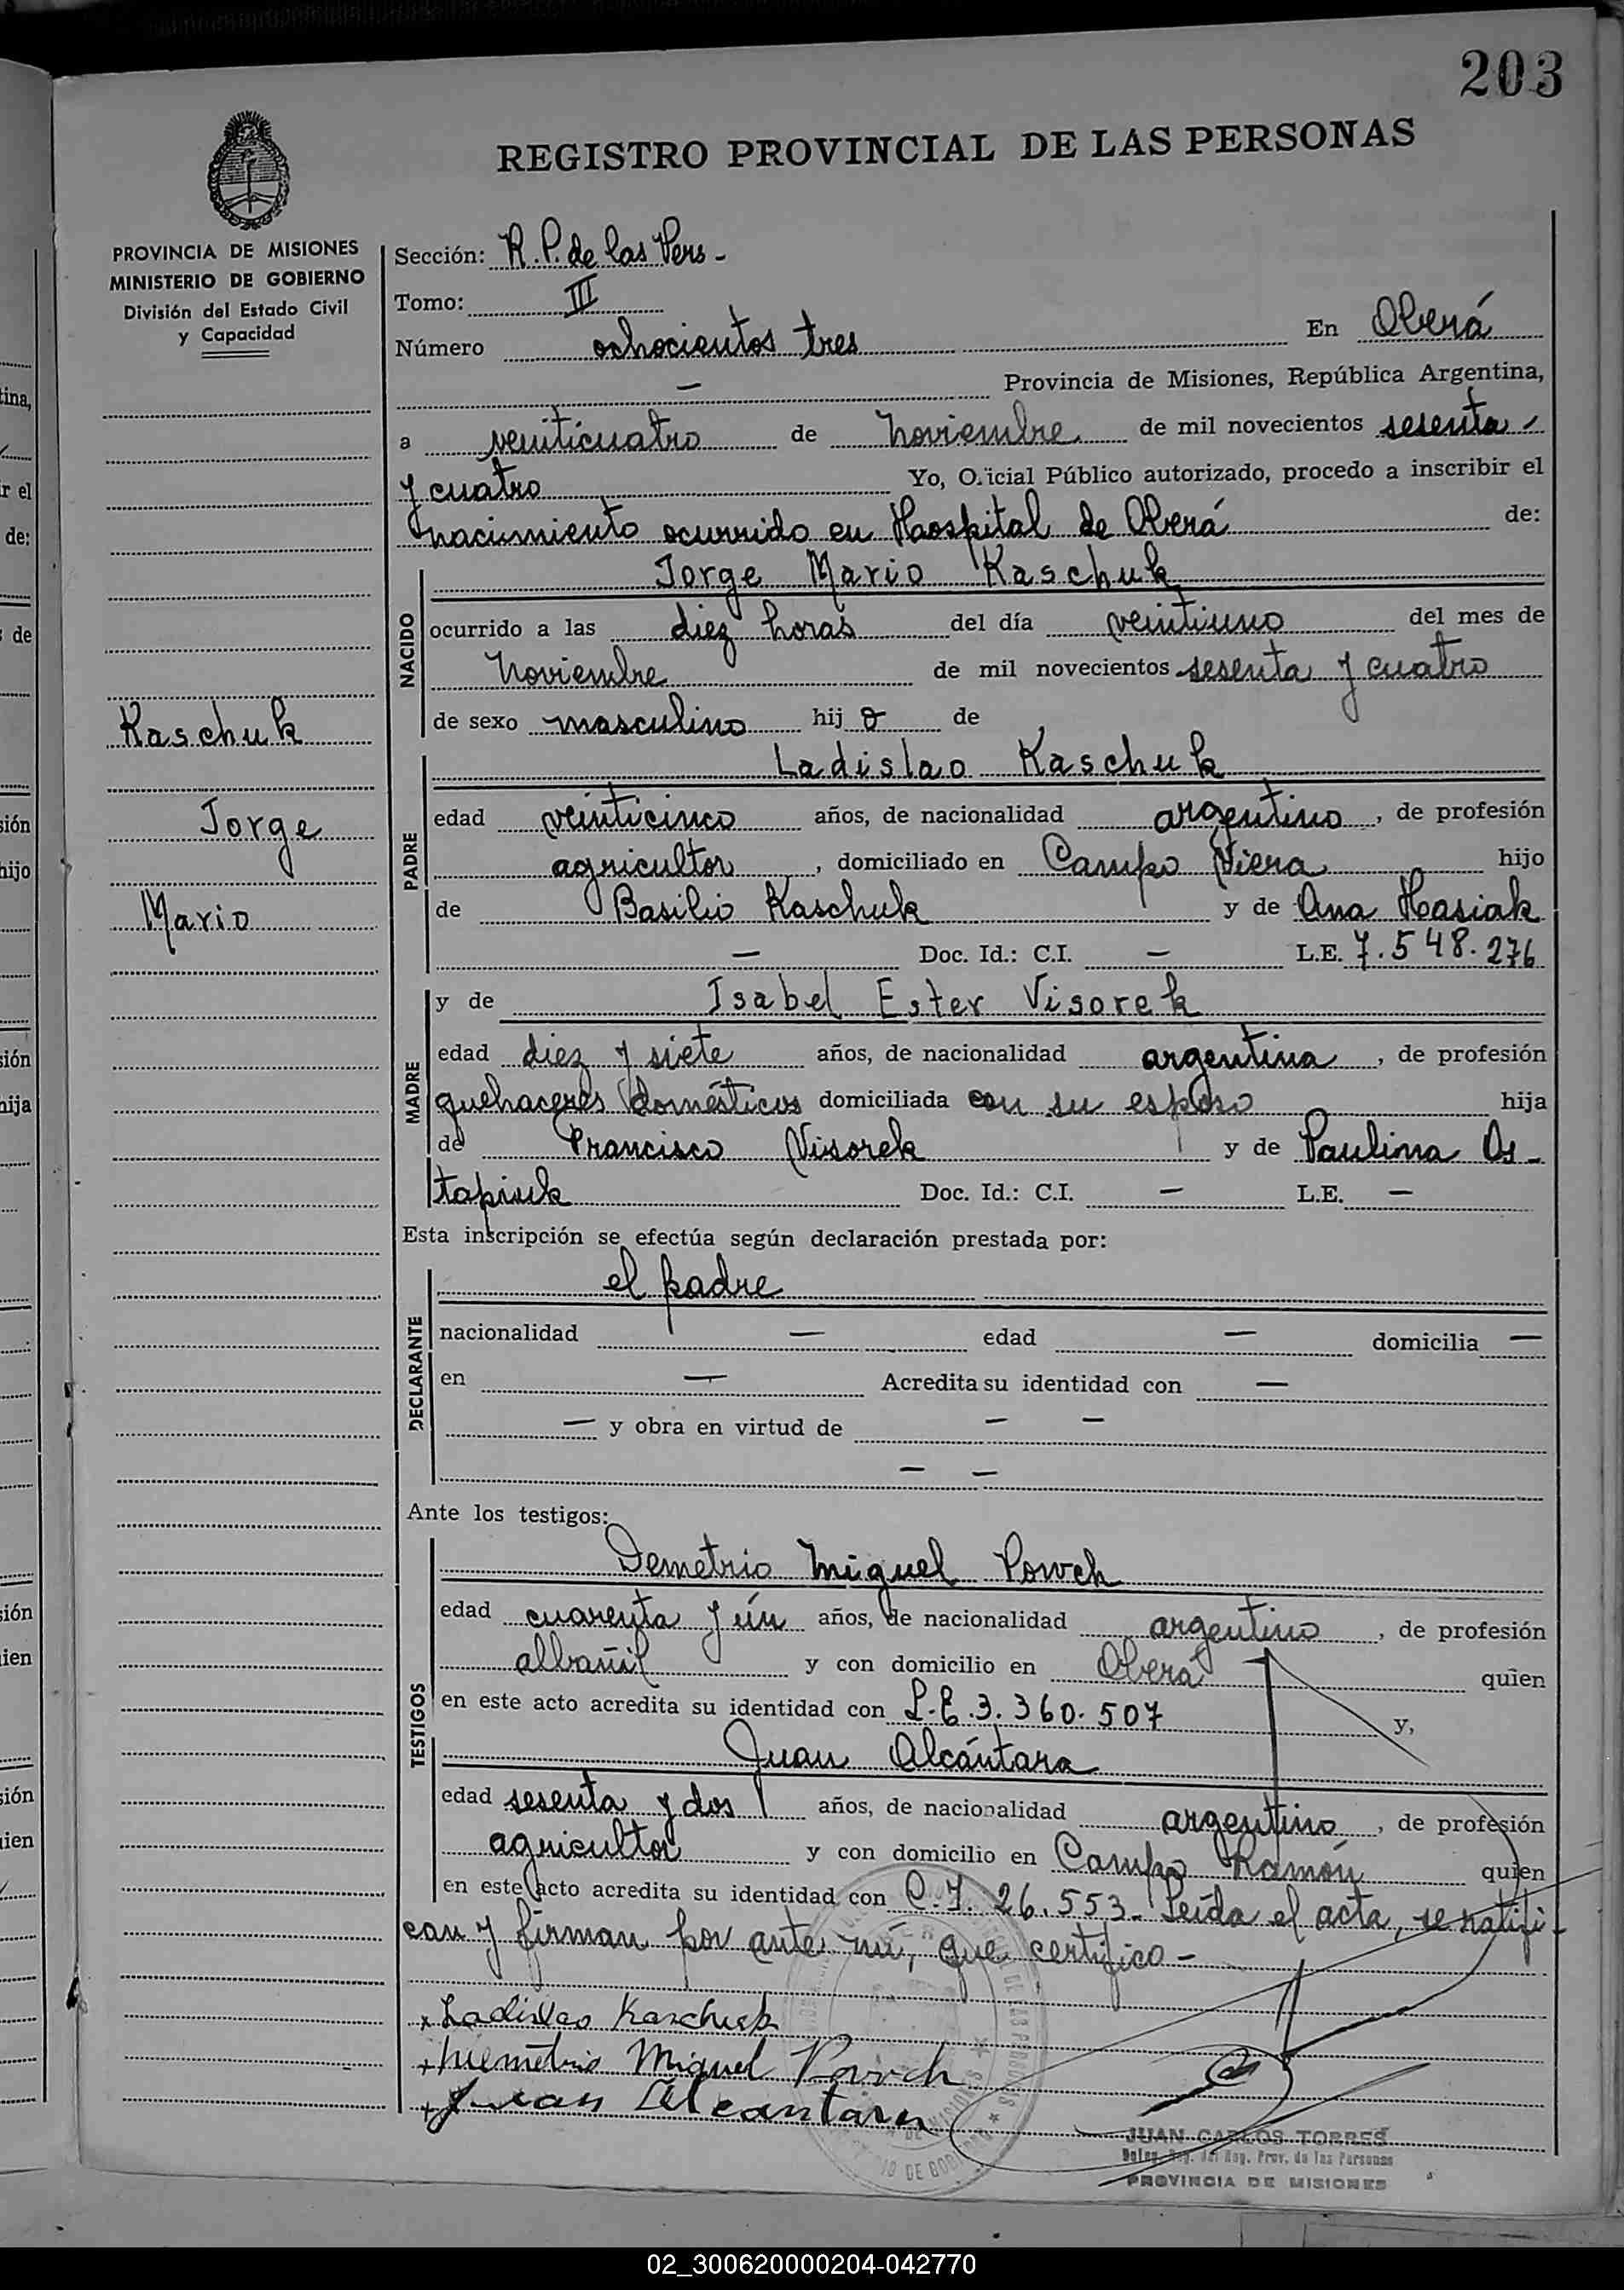 203
REGISTRO PROVINCIAL DE LAS PERSONAS
PROVINCIA DE MISIONES
MINISTERIO DE GOBIERNO
División del Estado Civil
y Capacidad
Kaschuk
Jorge
Mario
Sección: R.P. de las Pers -
Tomo: III
Número ochocientos tres En Oberá
— Provincia de Misiones, República Argentina,
a veinticuatro de Noviembre de mil novecientos sesenta
y cuatro Yo, Oficial Público autorizado, procedo a inscribir el
nacimiento ocurrido en Haospital de Oberá de:
NACIDO
Jorge Mario Kaschuk
ocurrido a las diez horas del día veintiuno del mes de
Noviembre de mil novecientos sesenta y cuatro
de sexo masculino hijo de
PADRE
Ladislao Kaschuk
edad veinticinco años, de nacionalidad argentino, de profesión
agricultor, domiciliado en Campo Viera hijo
de Basilio Kaschuk y de Ana Hasiak
— Doc. Id.: C.I. — L.E. 7.548.276
MADRE
y de Isabel Ester Visorek
edad diez y siete años, de nacionalidad argentina, de profesión
quehaceres domésticos domiciliada con su esposo hija
de Francisco Visorek y de Paulina Os-
tapiuk Doc. Id.: C.I. — L.E. —
Esta inscripción se efectúa según declaración prestada por:
DECLARANTE
el padre
nacionalidad — edad — domicilia —
en — Acredita su identidad con —
— y obra en virtud de — —
— —
Ante los testigos:
TESTIGOS
Demetrio Miguel Powch
edad cuarenta y ún años, de nacionalidad argentino, de profesión
albañil y con domicilio en Oberá quien
en este acto acredita su identidad con L.E. 3.360.507 y,
Juan Alcántara
edad sesenta y dos años, de nacionalidad argentino, de profesión
agricultor y con domicilio en Campo Ramón quien
en este acto acredita su identidad con C.I. 26.553- Leída el acta, se ratifi-
can y firman por ante mí, que certifico -
x Ladislao Kaschuk
+ Miguel Powch
+ Juan Alcantara
JUAN CARLOS TORRES
Prov. de las Personas
PROVINCIA DE MISIONES
02_300620000204-042770